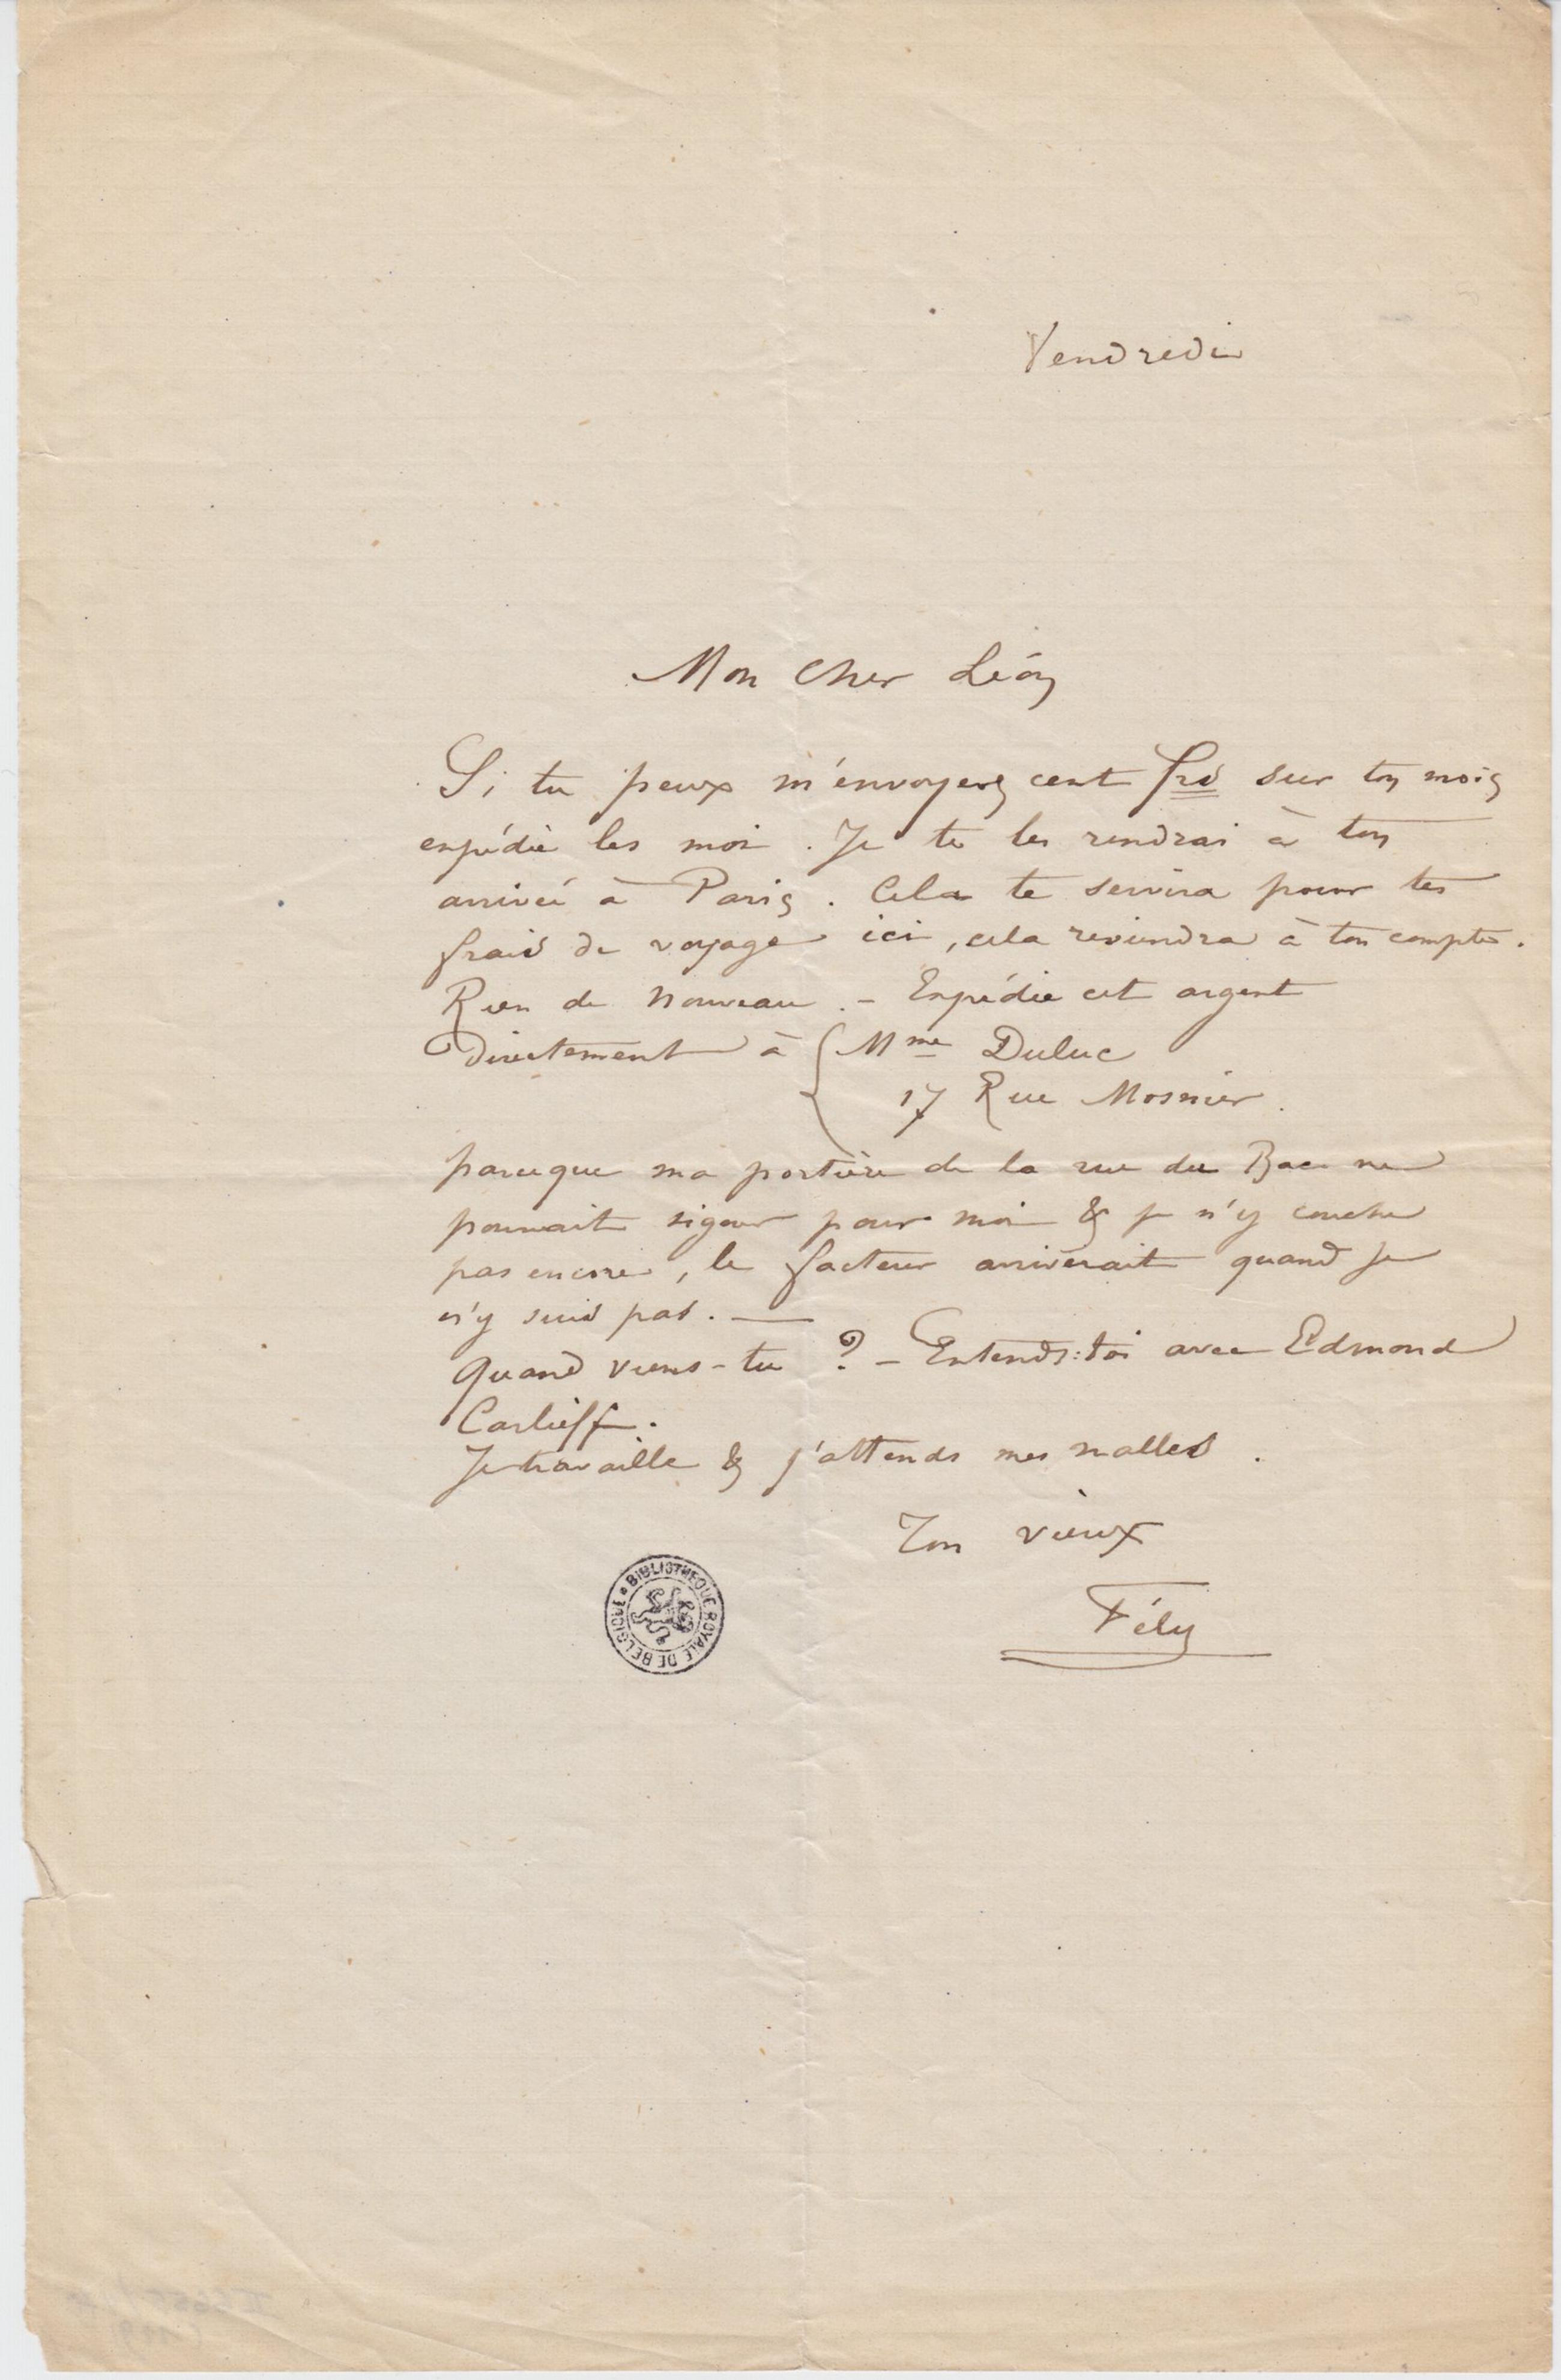 Vendredi
Mon cher Léon
Si tu peux m'envoyer cent frs sur ton mois
expédie les moi. Je te les rendrai à ton
arrivée à Paris. Cela te servira pour tes
frais de voyage ici, cela reviendra à ton compte.
Rien de nouveau. – Expédie cet argent
Directement à { Mme Duluc
17 Rue Mosnier.
parceque ma portière de la rue du Bac ne
pourrait signer pour moi & je n'y couche
pas encore, le facteur arriverait quand je
n'y suis pas. —
Quand viens-tu ? – Entends-toi avec Edmond
Carlier.
Je travaille & j'attends mes malles.
Ton vieux
Fély
BIBLIOTHEQUE ROYALE DE BELGIQUE